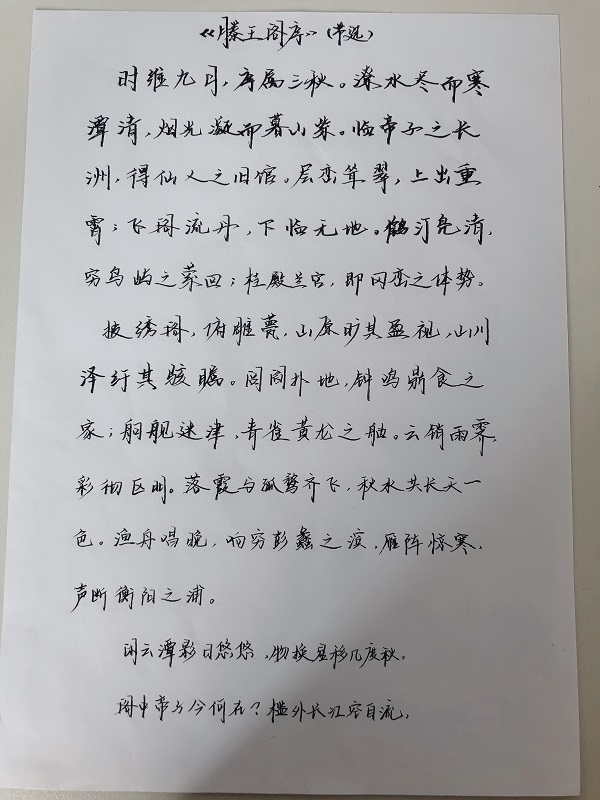 《滕王阁序》（节选）
时维九月，序属三秋。潦水尽而寒
潭清，烟光凝而暮山紫。临帝子之长
洲，得仙人之旧馆。层峦耸翠，上出重
霄；飞阁流丹，下临无地。鹤汀凫渚，
穷岛屿之萦回；桂殿兰宫，即冈峦之体势。
披绣闼，俯雕甍，山原旷其盈视，山川
泽纡其骇瞩。闾阎扑地，钟鸣鼎食之
家；舸舰迷津，青雀黄龙之舳。云销雨霁，
彩彻区明。落霞与孤鹜齐飞，秋水共长天一
色。渔舟唱晚，响穷彭蠡之滨，雁阵惊寒，
声断衡阳之浦。
闲云潭影日悠悠，物换星移几度秋。
阁中帝子今何在？槛外长江空自流。